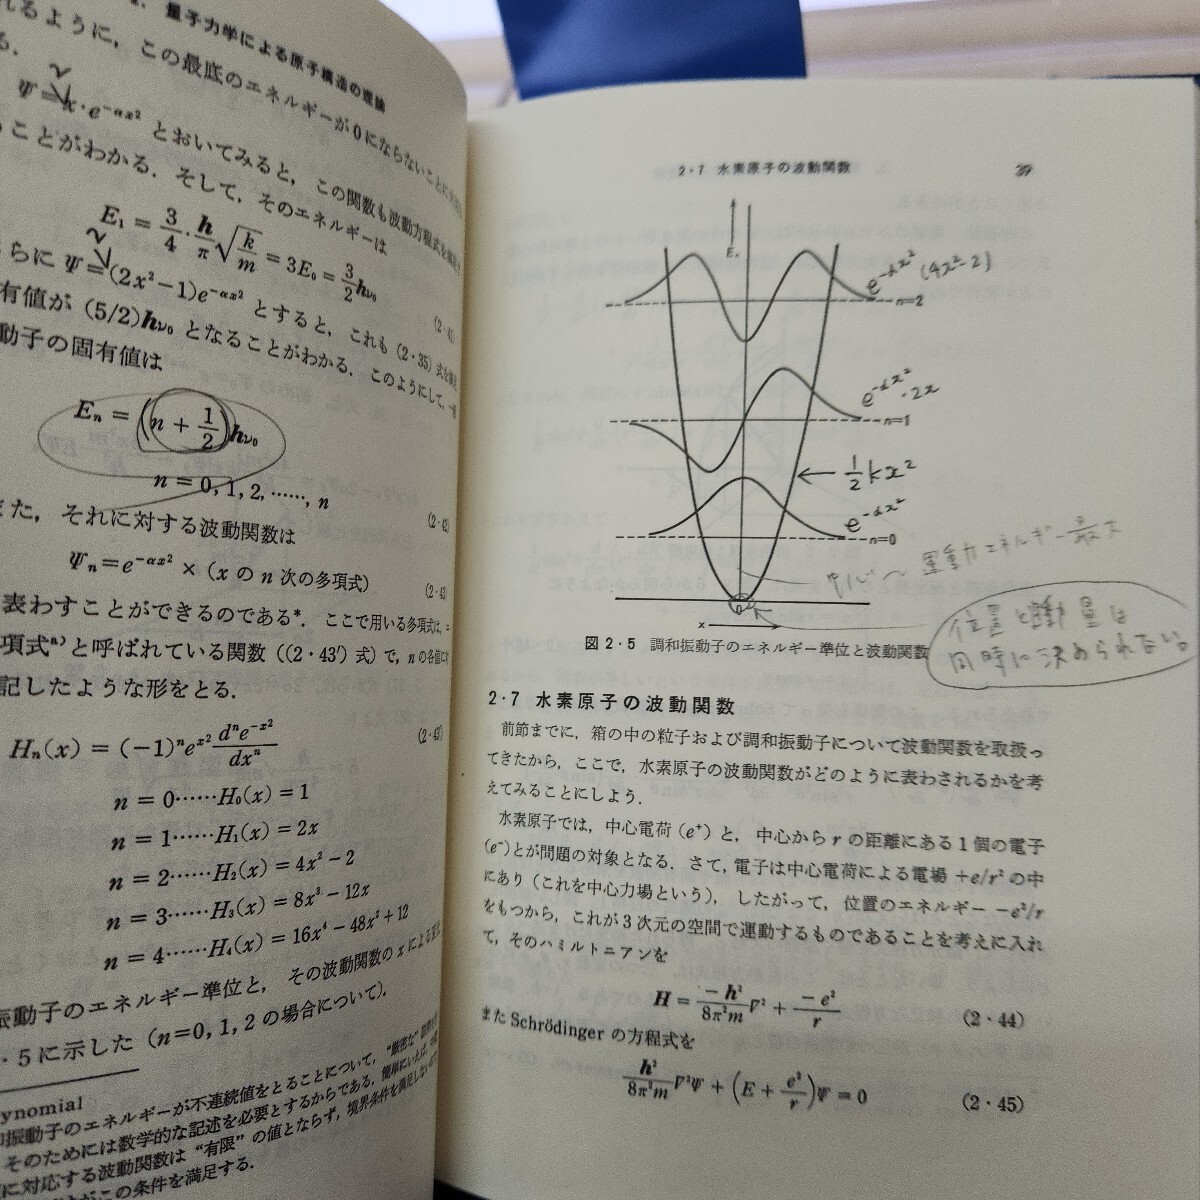 量子力学による原子構造の理論
れるように，この最底のエネルギーが0にならないことに
る．
Ψ=x·e^{-αx²} とおいてみると，この関数も波動方程式を
ことがわかる．そして，そのエネルギーは
E₁ = 3/4 · h/π √(k/m) = 3E₀ = 3/2 hν₀
(2·41)
らに Ψ=(2x²−1)e^{-αx²} とすると，これも (2·35) 式を
有値が (5/2)hν₀ となることがわかる．このようにして，一般
動子の固有値は
Eₙ = (n + 1/2)hν₀
n = 0, 1, 2, ……, n
(2·42)
また，それに対する波動関数は
Ψₙ = e^{-αx²} × (x の n 次の多項式)
(2·43)
表わすことができるのである*．ここで用いる多項式は，
項式ⁿ⁾と呼ばれている関数 ((2·43′) 式) で，n の各値に
記したような形をとる．
Hₙ(x) = (−1)ⁿe^{x²} dⁿe^{-x²}/dxⁿ
(2·43′)
n = 0……H₀(x) = 1
n = 1……H₁(x) = 2x
n = 2……H₂(x) = 4x² − 2
n = 3……H₃(x) = 8x³ − 12x
n = 4……H₄(x) = 16x⁴ − 48x² + 12
振動子のエネルギー準位と，その波動関数の x による
·5に示した (n=0, 1, 2 の場合について)．
ynomial
和振動子のエネルギーが不連続値をとることについて，“厳密な”
そのためには数学的な記述を必要とするからである．簡単にいえば，
に対応する波動関数は“有限”の値とならず，境界条件を満足しない
がこの条件を満足する．
2·7 水素原子の波動関数
39
E
e^{-αx²} (4x²−2)
n=2
e^{-αx²}·2x
n=1
← 1/2 kx²
e^{-αx²}
n=0
中心〜運動エネルギー最大
0
x
位置と運動量は
同時に決められない
図 2·5 調和振動子のエネルギー準位と波動関数
2·7 水素原子の波動関数
前節までに，箱の中の粒子および調和振動子について波動関数を取扱っ
てきたから，ここで，水素原子の波動関数がどのように表わされるかを考
えてみることにしよう．
水素原子では，中心電荷 (e⁺) と，中心から r の距離にある1個の電子
(e⁻) とが問題の対象となる．さて，電子は中心電荷による電場 +e/r² の中
にあり (これを中心力場という)，したがって，位置のエネルギー −e²/r
をもつから，これが3次元の空間で運動するものであることを考えに入れ
て，そのハミルトニアンを
H = −h²/8π²m ∇² + −e²/r
(2·44)
また Schrödinger の方程式を
h²/8π²m ∇²Ψ + (E + e²/r)Ψ = 0
(2·45)